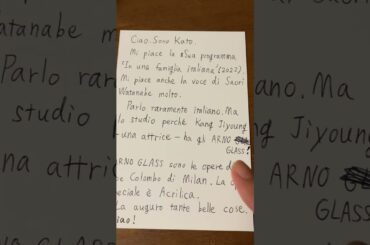 Ciao. Sono Kato.
Mi piace la Sua programma
"In una famiglia italiana"(2027).
Mi piace anche la voce di Saori
Watanabe molto.
Parlo raramente italiano. Ma
lo studio perchè Kang Jiyoung
una attrice - ha gli ARNO
GLASS!
ARNO GLASS sono le opere di
Colombo di Milan. La
speciale è Acrilica.
La auguro tante belle cose.
Ciao!